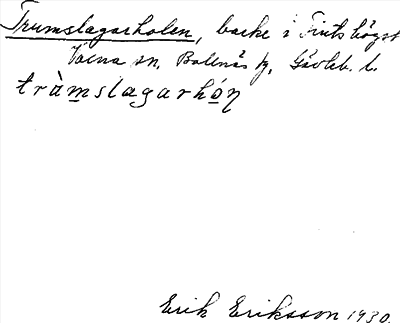 Trumslagarholen, backe i Finnshögst
Voxna sn, Bollnäs tg, Gävleb. l.
tràmslagarhón
Erik Eriksson 1930.